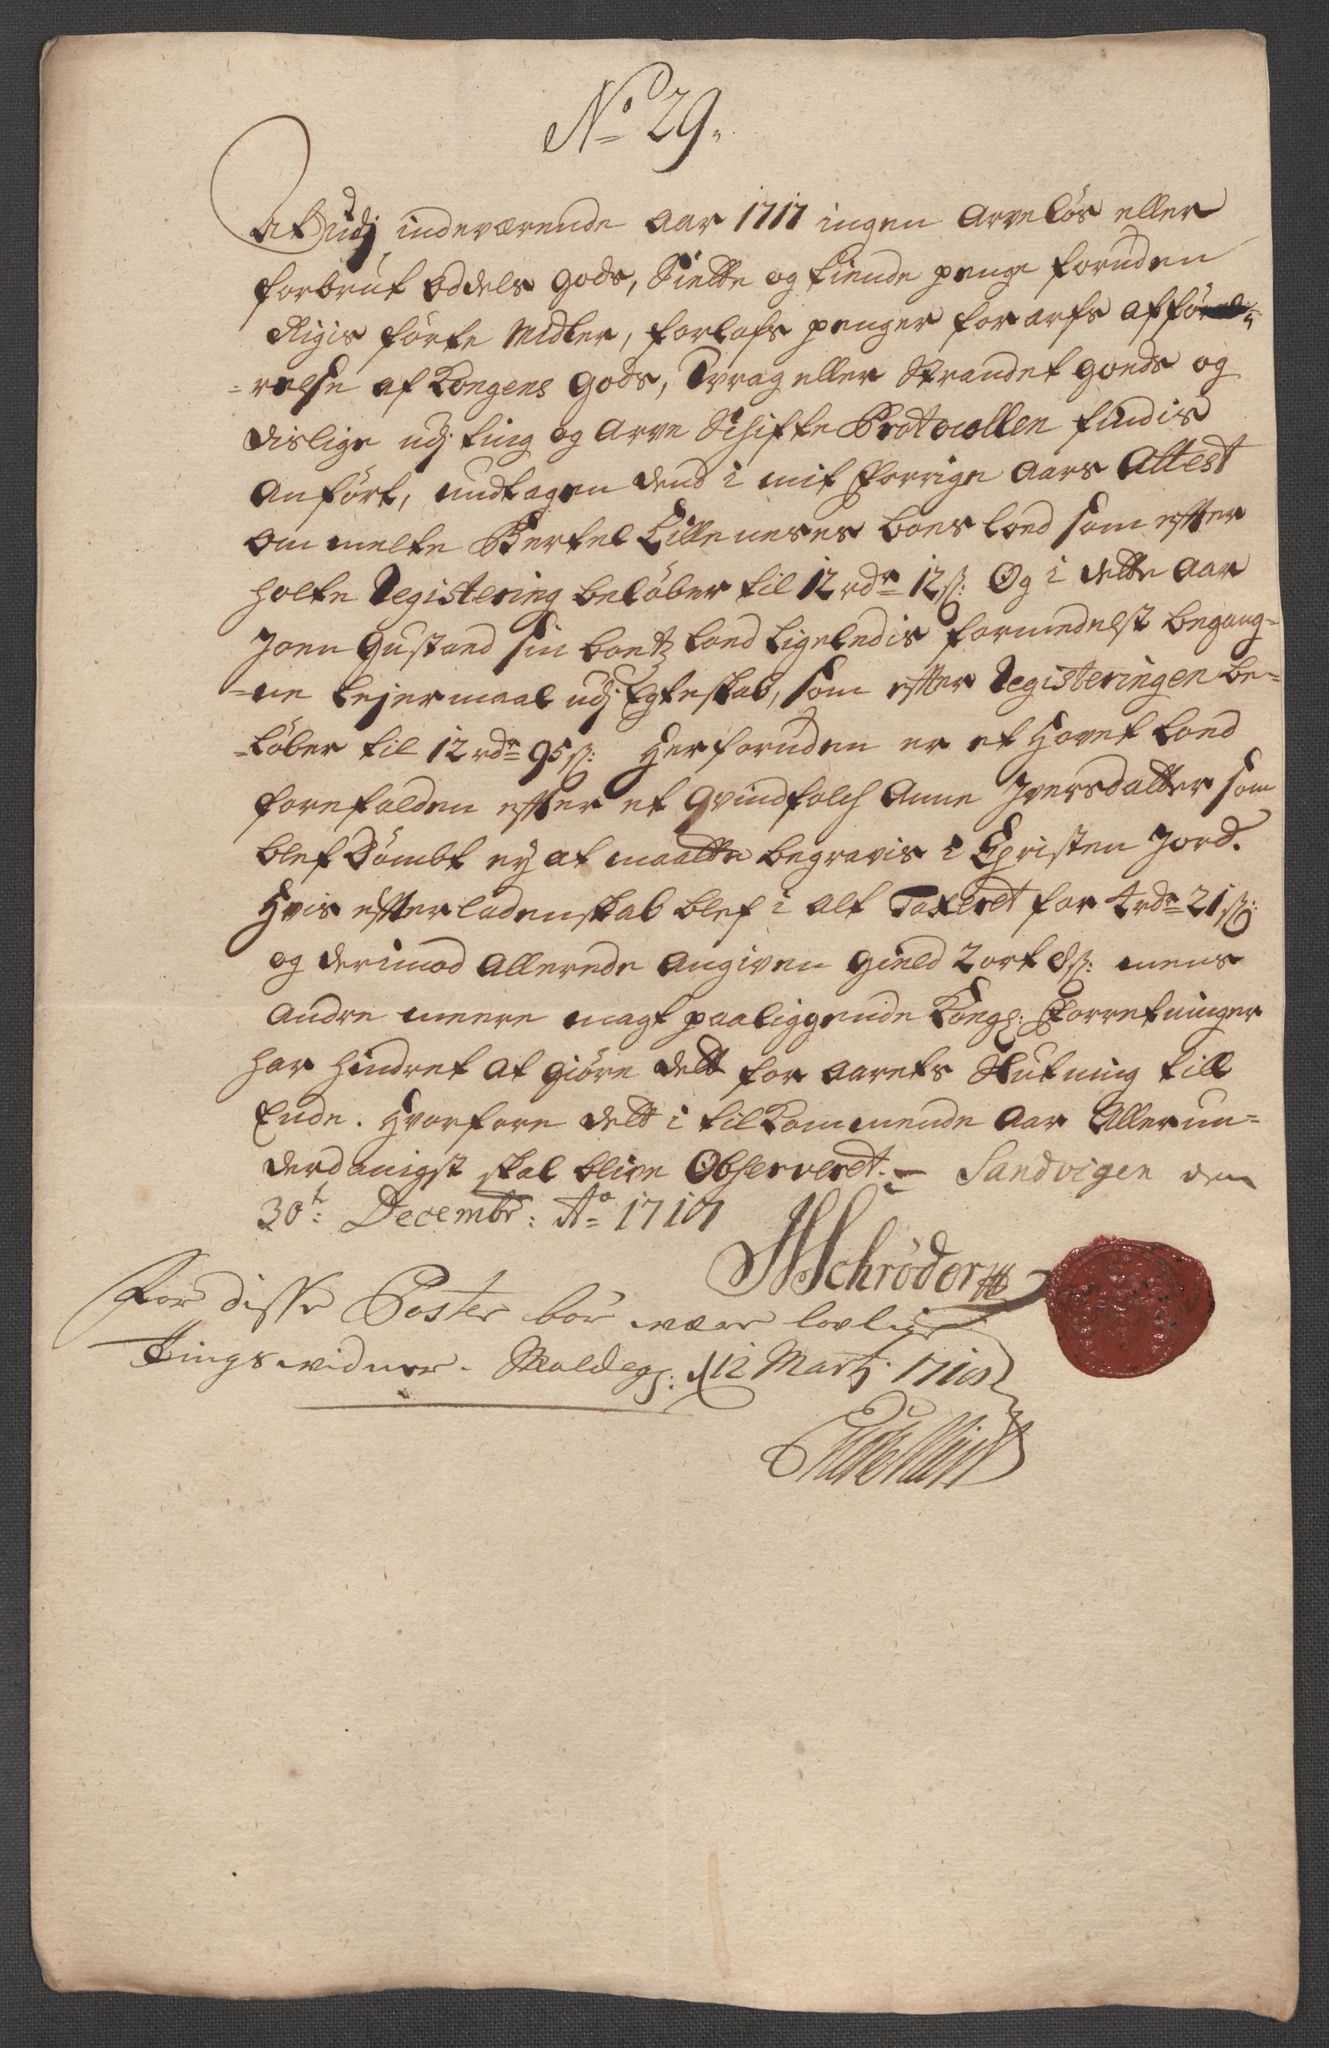 No 29.
At udj indeværende Aar 1717 ingen Arveløs eller
forbrut Oddels Gods, Siette og tiende penge foruden
Rigis førte Midler, forlofs penger for arfs afføre-
-relse af Kongens Gods, Vrag eller Strandet goeds og
dislige udj ting og Arve Schifte Protocollen findis
Anført, undtagen dend i mit Forrige Aars Attest
Om melte Bertel Lilleneses boes lod som effter
holte Registering beløber til 12 rdr 12 ß: Og i dette Aar
Joen Gustand sin boetz lod ligeledis formedelst begang-
-ne lejermaal udj Egteskab, som effter Registeringen be-
-løber til 12 rdr 95 ß: Herforuden er et Hovet lod
forefalden effter et Qvindfolch Anne Iversdatter som
blef Dømbt ey at maatte begravis i Christen Jord.
Hvis effterladenskab blef i alt Taxeret for 4 rdr 21 ß:
og derimod Allerede Angiven Gield 2 ort 8 ß: mens
Andre meere magt paaliggende Kongl: Forretninger
har hindret At giøre dett for Aarets Slutning till
Ende. Hvorfore dett i tilkommende Aar Allerun-
derdanigst skal blive Observeret. Sandvigen den
30t: Decembr: Ao 1717
Schrøder
For disse Poster bør være lovlige
tingsvidner. Moldegs: d 12 Martj: 1718